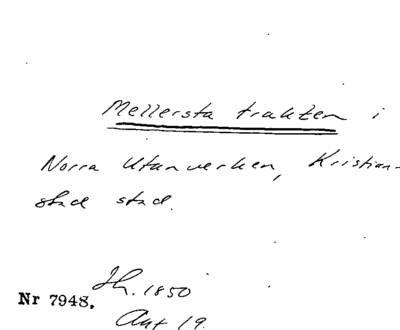 Mellersta trakten i
Norra Utanverken, Kristian-
stad stad.
Ih. 1850
Nr 7948.
Akt 19.